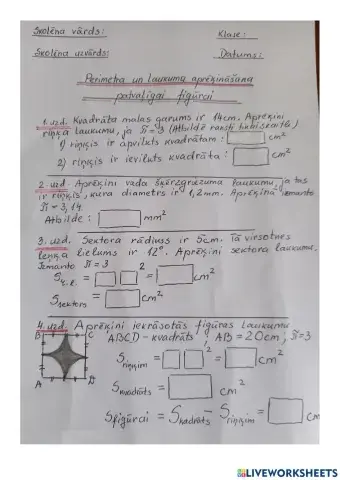 Skolēna vārds:
Klase:
Skolēna uzvārds:
Datums:
Perimetra un laukuma aprēķināšana
patvaļīgai figūrai
1. uzd. Kvadrāta malas garums ir 14cm. Aprēķini
riņķa laukumu, ja π=3 (Atbildē raksti tikai skaitli)
1) riņķis ir apvilkts kvadrātam: cm²
2) riņķis ir ievilkts kvadrātā: cm²
2. uzd. Aprēķini vada šķērsgriezuma laukumu, ja tas
ir riņķis, kura diametrs ir 1,2mm. Aprēķinā izmanto
π=3,14
Atbilde: mm²
3. uzd. Sektora rādiuss ir 5cm. Tā virsotnes
leņķa lielums ir 12°. Aprēķini sektora laukumu.
Izmanto π=3
S = ² = cm²
S sektors = cm²
4. uzd. Aprēķini iekrāsotās figūras laukumu
B C ABCD - kvadrāts, AB=20cm, π=3
S riņķim = ² = cm²
S kvadrāts = cm²
A D
S figūrai = S kvadrāts - S riņķim = cm
LIVEWORKSHEETS